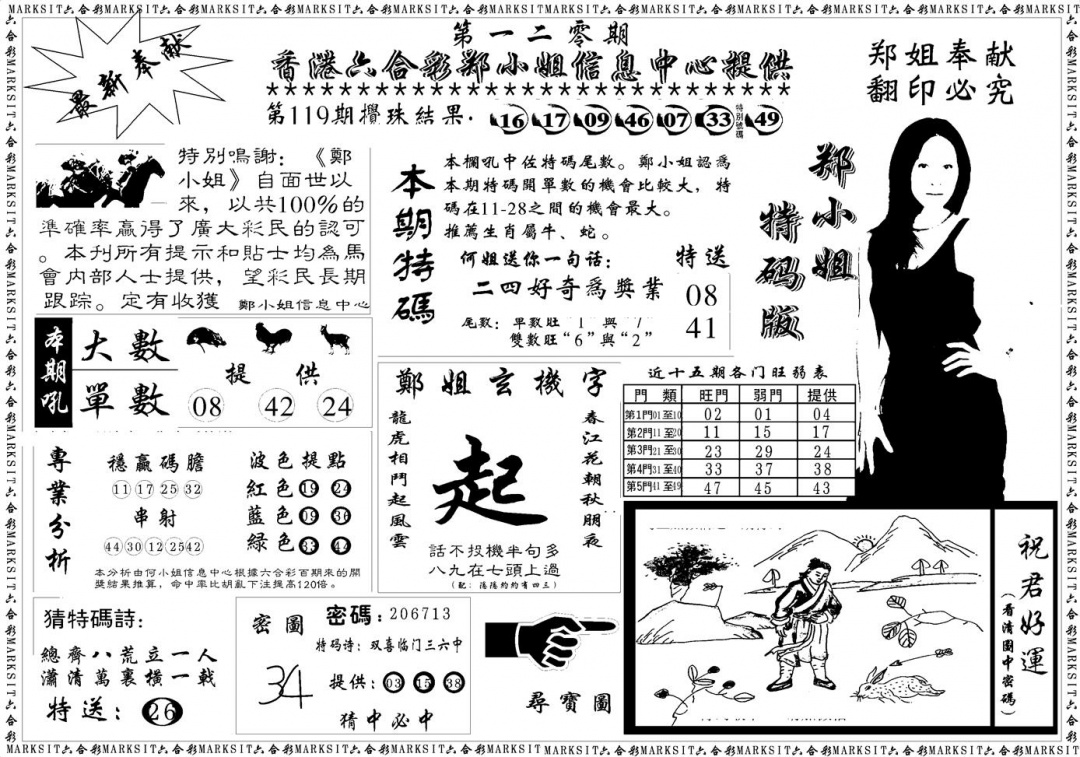 MARKSIT六合彩MARKSIT六合彩MARKSIT六合彩MARKSIT六合彩MARKSIT六合彩MARKSIT六合彩MARKSIT六合彩MARKSIT六合彩MARKSIT六合彩MARKSIT六合彩MARKSIT六合彩
最新奉献
第一二零期
香港六合彩郑小姐信息中心提供
第119期攪珠結果. 16 17 09 46 07 33 特别號碼 49
郑姐奉献
翻印必究
郑小姐
特码版
特别鳴謝：《鄭
小姐》自面世以
來，以共100%的
準確率贏得了廣大彩民的認可
。本刊所有提示和貼士均為馬
會内部人士提供，望彩民長期
跟踪。定有收獲 鄭小姐信息中心
本期特碼
本欄吼中佐特碼尾數。鄭小姐認爲
本期特碼開單數的機會比較大，特
碼在11-28之間的機會最大。
推薦生肖屬牛、蛇。
何姐送你一句话： 特送
二四好奇爲獎業 08
41
尾數：單數旺“1”與“7”
雙數旺“6”與“2”
本期吼
大數
單數
提供
08 42 24
鄭姐玄機字
龍虎相鬥起風雲
起
春江花朝秋朋夜
話不投機半句多
八九在七頭上過
近十五期各门旺弱表
門類 旺門 弱門 提供
第1門01至10 02 01 04
第2門11至20 11 15 17
第3門21至30 23 29 24
第4門31至40 33 37 38
第5門41至49 47 45 43
專業分析
穩贏碼膽
11 17 25 32
串射
44 30 12 25 42
波色提點
紅色 19 24
藍色 09 36
緑色 33 44
本分析由何小姐信息中心根據六合彩百期來的開
獎結果推算，命中率比胡亂下法提高120倍。
猜特碼詩：
總齊八荒立一人
瀟清萬裏横一戟
特送：26
密圖
34
密碼：206713
特码诗：双喜临门三六中
提供：03 15 38
猜中必中
尋寶圖
祝君好運
（看清圖中密碼）
MARKSIT六合彩MARKSIT六合彩MARKSIT六合彩MARKSIT六合彩MARKSIT六合彩MARKSIT六合彩MARKSIT六合彩MARKSIT六合彩MARKSIT六合彩MARKSIT六合彩MARKSIT六合彩